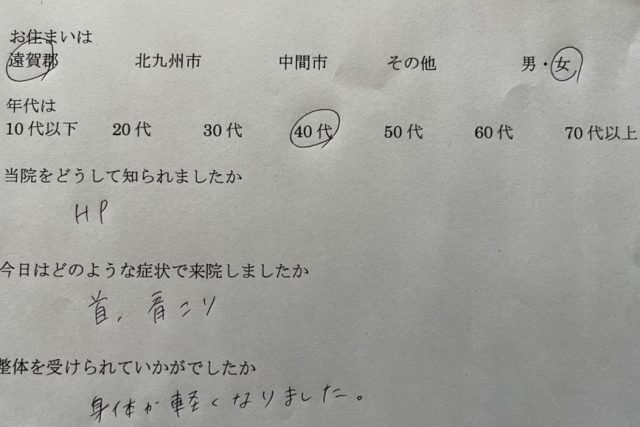 お住まいは
遠賀郡 北九州市 中間市 その他 男・女
年代は
10代以下 20代 30代 40代 50代 60代 70代以上
当院をどうして知られましたか
HP
今日はどのような症状で来院しましたか
首、肩こり
整体を受けられていかがでしたか
身体が軽くなりました。